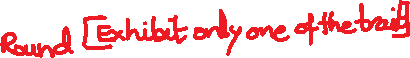 Round [Exhibit only one of the trait]